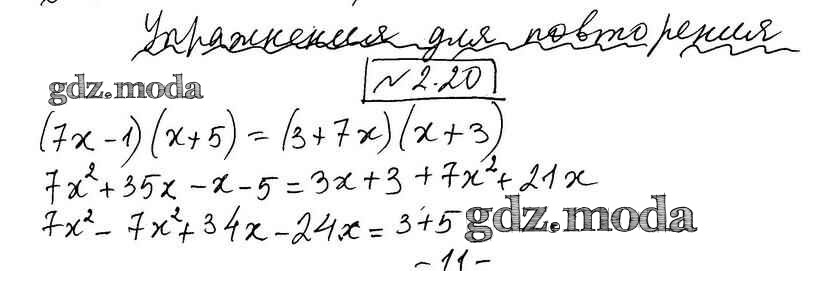 Упражнения для повторения
gdz.moda
№ 2.20
(7x-1)(x+5) = (3+7x)(x+3)
7x²+35x-x-5 = 3x+3+7x²+21x
7x²-7x²+34x-24x = 3+5
gdz.moda
-11-